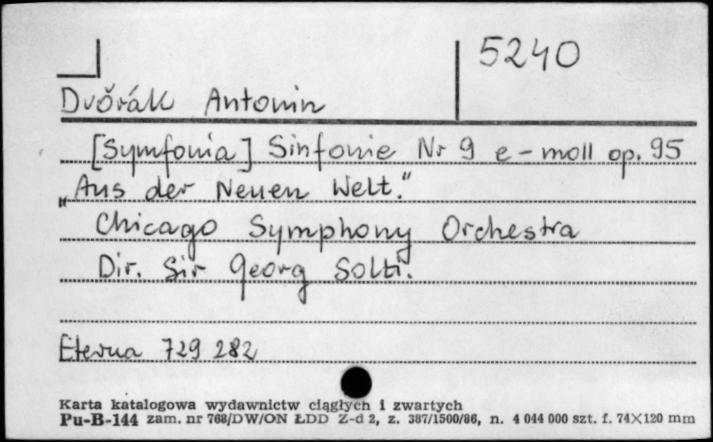 5240
Dvořák Antonin
[Symfonia] Sinfonie Nr 9 e-moll op. 95
„Aus der Neuen Welt."
Chicago Symphony Orchestra
Dir. Sir Georg Solti.
Eterna 729 282
Karta katalogowa wydawnictw ciągłych i zwartych
Pu-B-144 zam. nr 768/DW/ON ŁDD Z-d 2, z. 387/1500/86, n. 4 044 000 szt. f. 74×120 mm